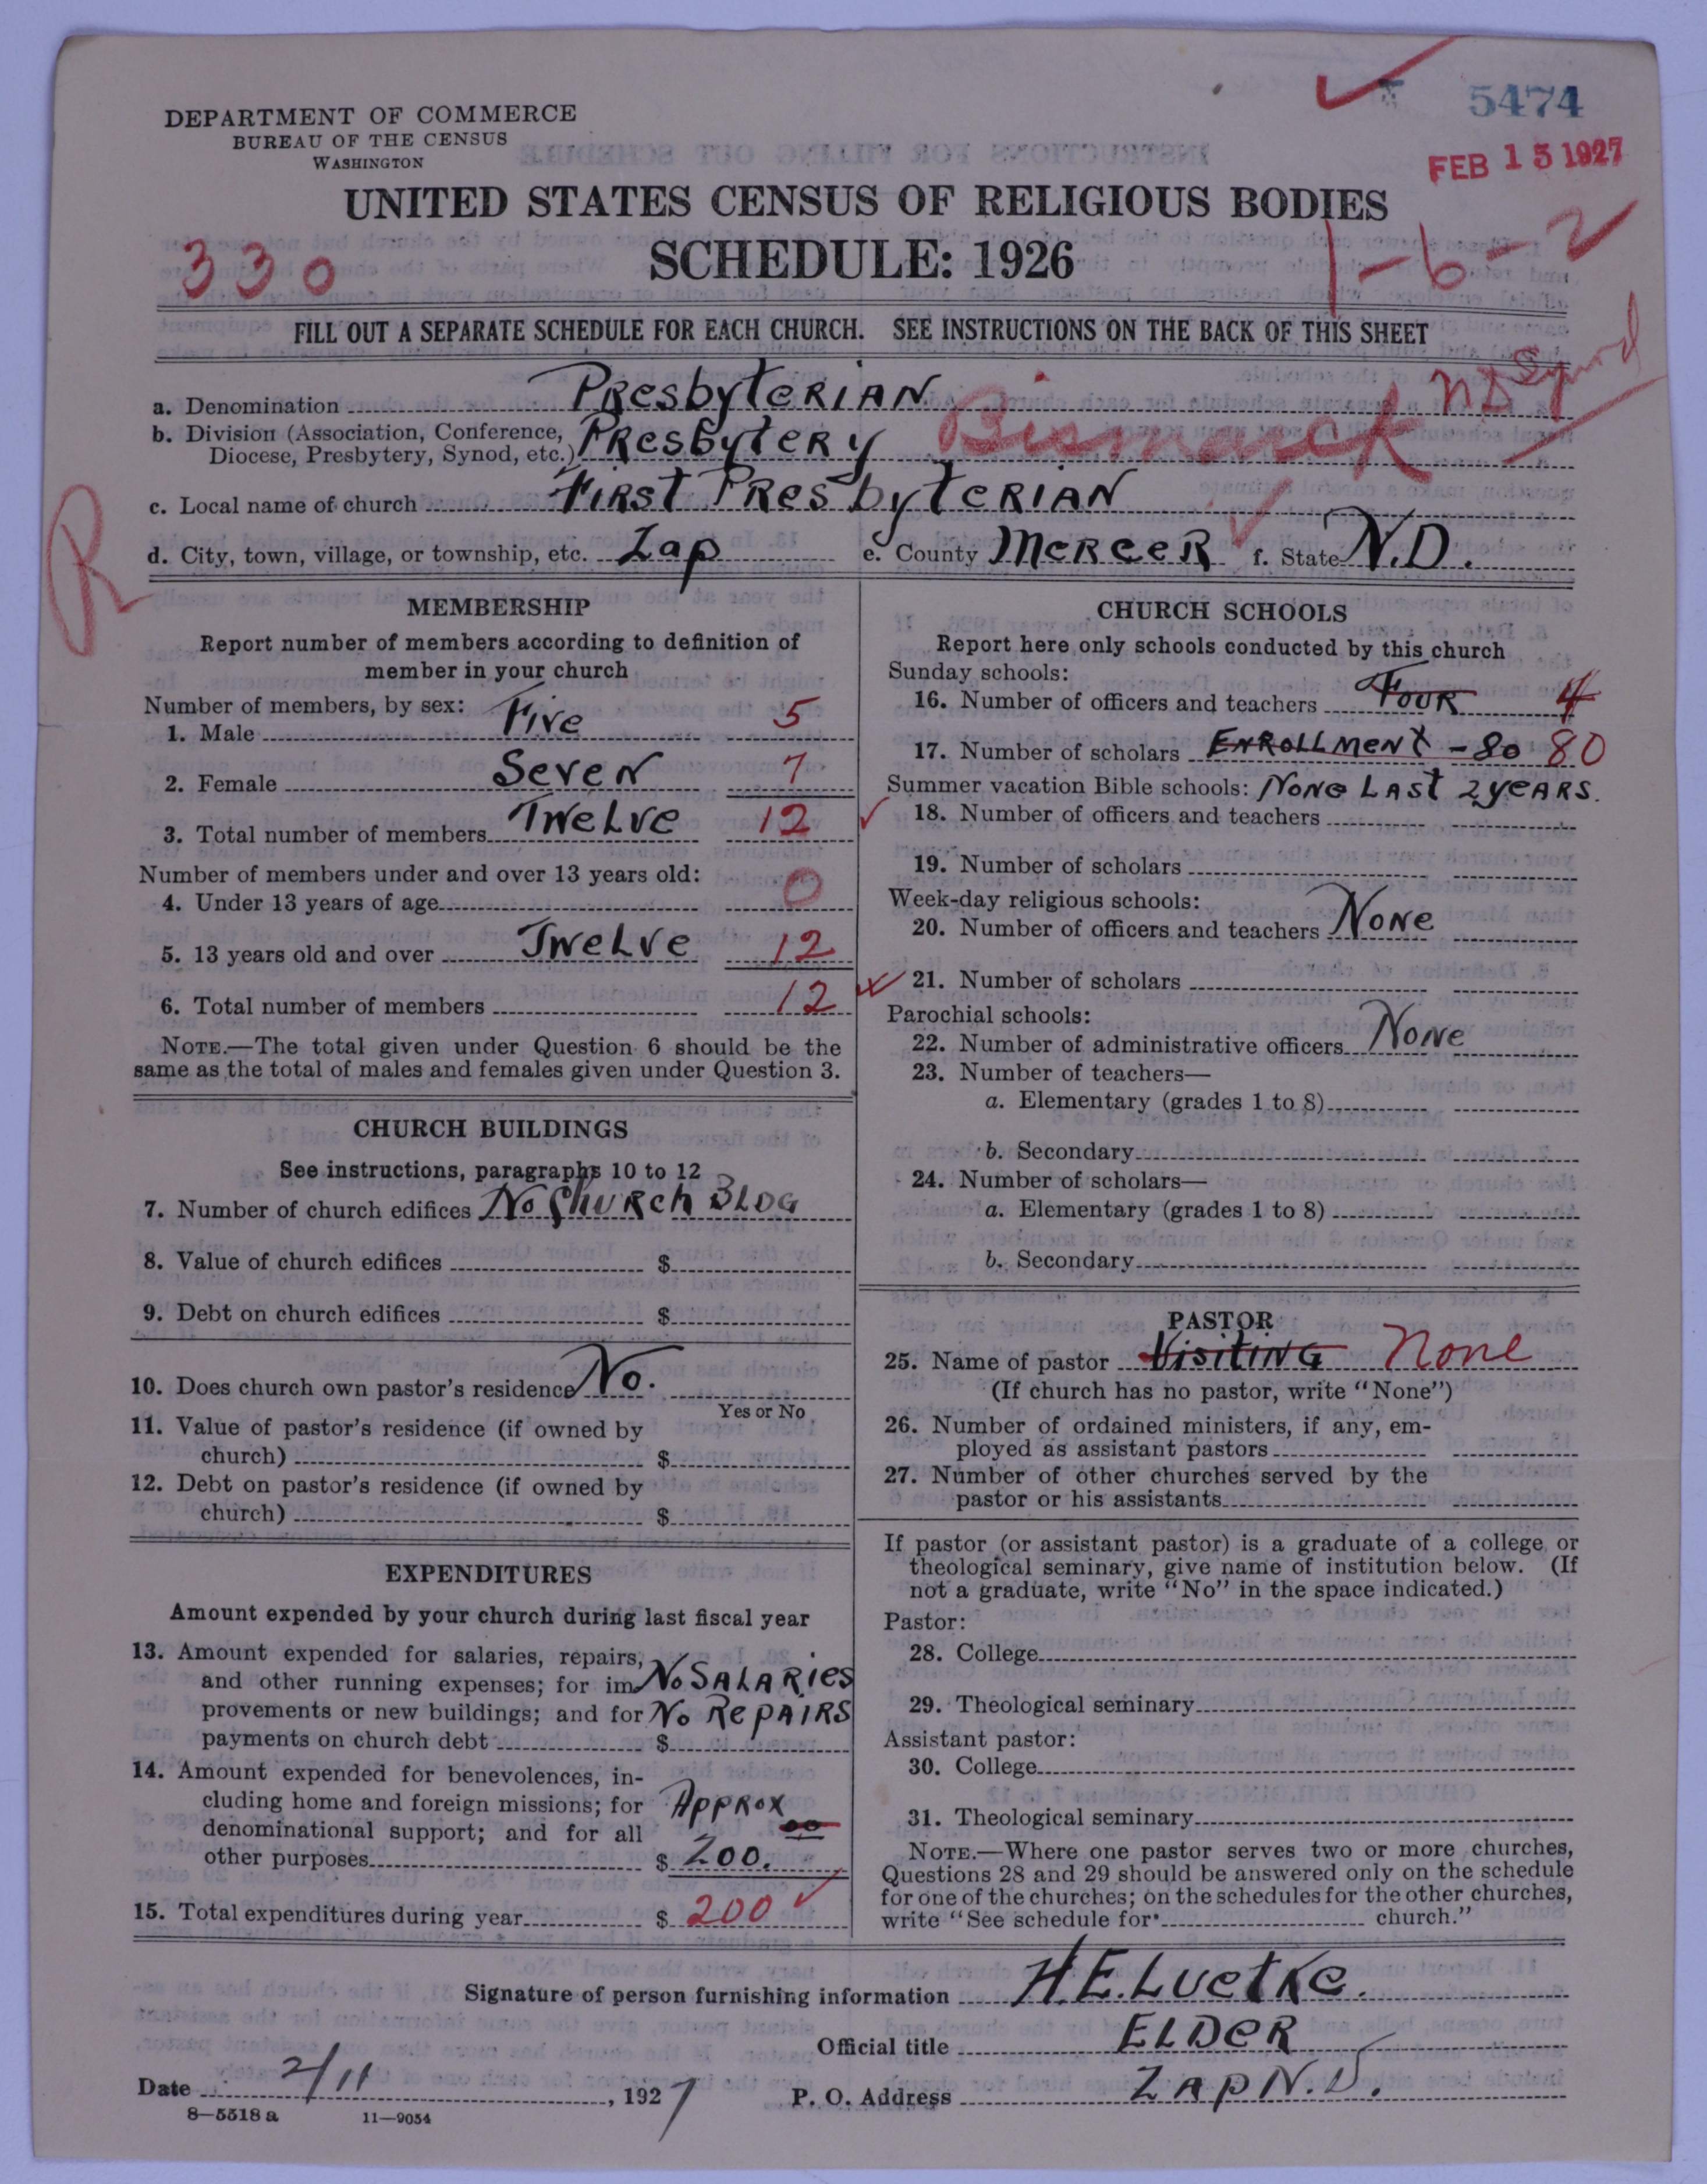 5474
FEB 15 1927
DEPARTMENT OF COMMERCE
BUREAU OF THE CENSUS
WASHINGTON
UNITED STATES CENSUS OF RELIGIOUS BODIES
SCHEDULE: 1926
330
1-6-2
FILL OUT A SEPARATE SCHEDULE FOR EACH CHURCH. SEE INSTRUCTIONS ON THE BACK OF THIS SHEET
a. Denomination Presbyterian ND Synod
b. Division (Association, Conference, Diocese, Presbytery, Synod, etc.) Presbytery Bismarck
c. Local name of church First Presbyterian
R
d. City, town, village, or township, etc. Zap e. County Mercer f. State N.D.
MEMBERSHIP
Report number of members according to definition of
member in your church
Number of members, by sex:
1. Male Five 5
2. Female Seven 7
3. Total number of members Twelve 12
Number of members under and over 13 years old:
4. Under 13 years of age 0
5. 13 years old and over Twelve 12
6. Total number of members 12
NOTE.—The total given under Question 6 should be the
same as the total of males and females given under Question 3.
CHURCH BUILDINGS
See instructions, paragraphs 10 to 12
7. Number of church edifices No Church BLDG
8. Value of church edifices $
9. Debt on church edifices $
10. Does church own pastor's residence No.
Yes or No
11. Value of pastor's residence (if owned by
church) $
12. Debt on pastor's residence (if owned by
church) $
EXPENDITURES
Amount expended by your church during last fiscal year
13. Amount expended for salaries, repairs,
and other running expenses; for im No SALARies
provements or new buildings; and for No RePAIRS
payments on church debt $
14. Amount expended for benevolences, in-
cluding home and foreign missions; for Approx
denominational support; and for all 00
other purposes $ 200.
15. Total expenditures during year $ 200
CHURCH SCHOOLS
Report here only schools conducted by this church
Sunday schools:
16. Number of officers and teachers Four 4
17. Number of scholars Enrollment - 80 80
Summer vacation Bible schools: None Last 2 years.
18. Number of officers and teachers
19. Number of scholars
Week-day religious schools:
20. Number of officers and teachers None
21. Number of scholars
Parochial schools:
22. Number of administrative officers None
23. Number of teachers—
a. Elementary (grades 1 to 8)
b. Secondary
24. Number of scholars—
a. Elementary (grades 1 to 8)
b. Secondary
PASTOR
25. Name of pastor Visiting None
(If church has no pastor, write "None")
26. Number of ordained ministers, if any, em-
ployed as assistant pastors
27. Number of other churches served by the
pastor or his assistants
If pastor (or assistant pastor) is a graduate of a college or
theological seminary, give name of institution below. (If
not a graduate, write "No" in the space indicated.)
Pastor:
28. College
29. Theological seminary
Assistant pastor:
30. College
31. Theological seminary
NOTE.—Where one pastor serves two or more churches,
Questions 28 and 29 should be answered only on the schedule
for one of the churches; on the schedules for the other churches,
write "See schedule for church."
Signature of person furnishing information H.E. Luetke.
Official title ELDER
Date 2/11, 1927 P. O. Address Zap N.D.
8—5518 a 11—9054